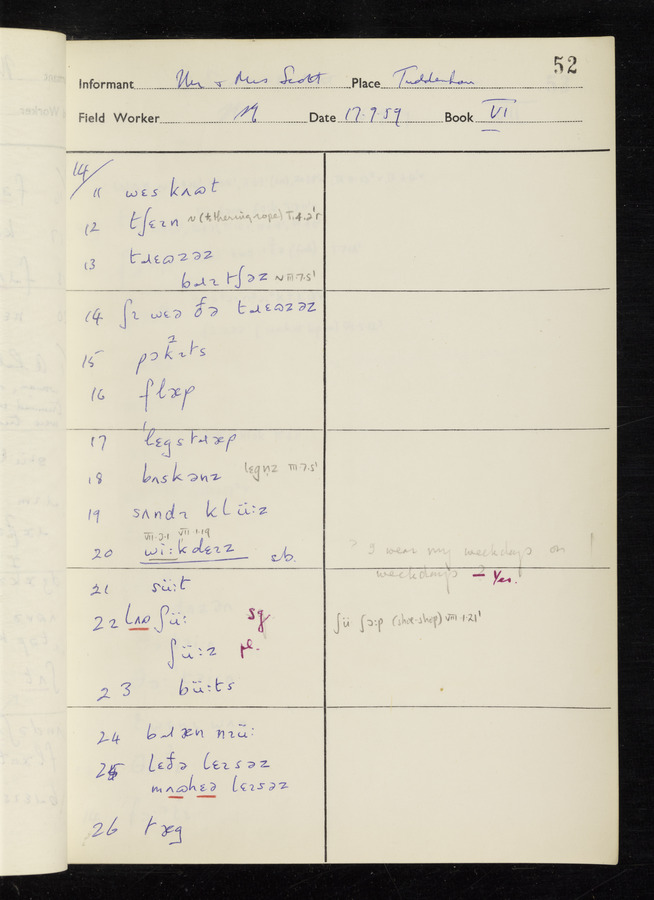 52
Informant Mr & Mrs Scott Place Tuddenham
Field Worker Date 17.9.59 Book VI
14/
11 wɛs kʌɷt
12 tʃɛɪn v (tethering rope) I.4.2'r
13 tɹɛɷzəz
bɹɪtʃəz v VII.7.5'
14 ʃɪ wɛə ðə tɹɛɷzəz
15 pɔkɪts
16 flæp
17 'lɛgstɹæp
18 bʌskənz lɛgnz III 7.5'
19 sʌndɪ klü:z
VII.3.1 VII.1.19
20 wi:kdɛɪz sb.
? I wear my weekdays on !
weekdays ? – Yes.
21 sü:t
22 ʃü: sg
ʃü:z pl.
ʃü ʃɔ:p (shoe-shop) VIII.1.21'
23 bü:ts
24 bɹæn nɪü:
25 lɛðə lɛɪsəz
mʌɷhɛə lɛɪsəz
26 ɹæg